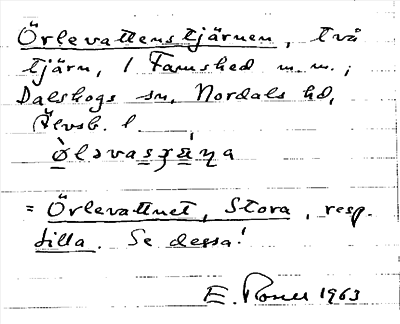 Örlevattenstjärnen, två
tjärn, i Famshed m.m.;
Dalskogs sn, Nordals hd,
Älvsb. l.
= Örlevattnet, Stora, resp.
Lilla. Se dessa!
E. 1963